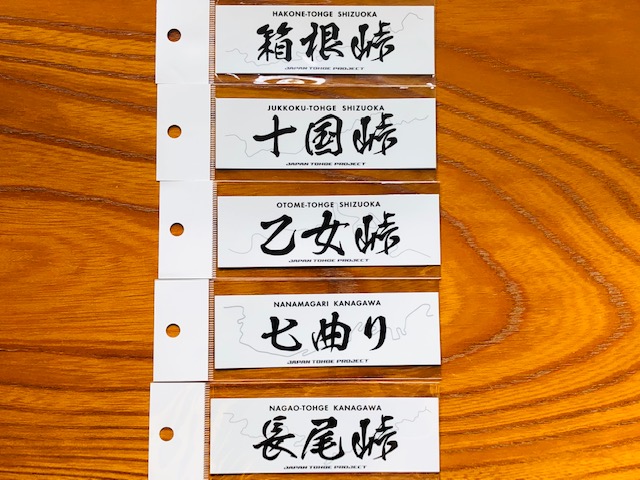 HAKONE-TOHGE SHIZUOKA
箱根峠
JAPAN TOHGE PROJECT
JUKKOKU-TOHGE SHIZUOKA
十国峠
JAPAN TOHGE PROJECT
OTOME-TOHGE SHIZUOKA
乙女峠
JAPAN TOHGE PROJECT
NANAMAGARI KANAGAWA
七曲り
JAPAN TOHGE PROJECT
NAGAO-TOHGE KANAGAWA
長尾峠
JAPAN TOHGE PROJECT